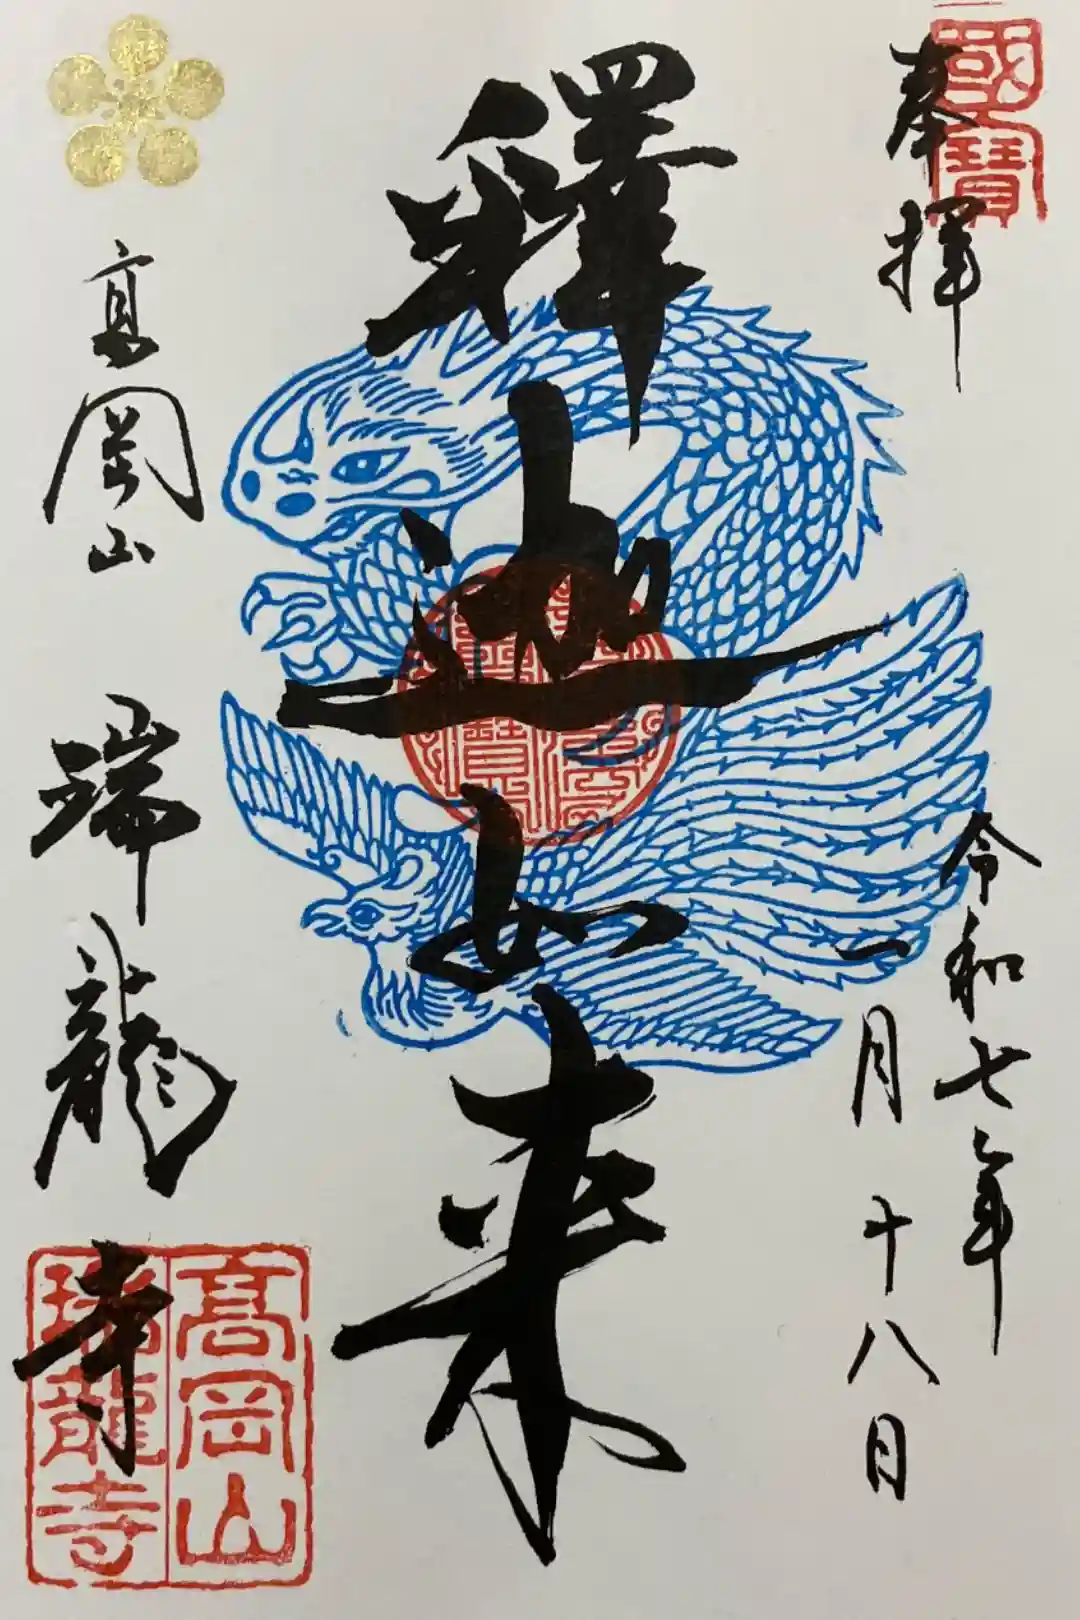 國寶
奉拝
釋迦如来
令和七年
一月十八日
高岡山
瑞龍寺
高岡山
瑞龍寺